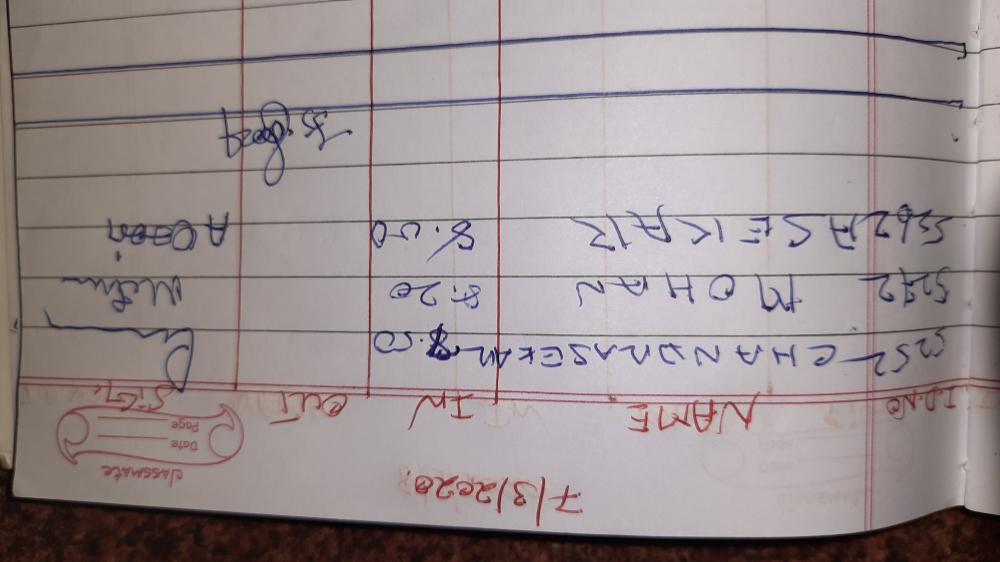 7/3/2020.
classmate
Date
Page
I.D.NO NAME IN OUT SIG.
5252 CHANDRASEKAR 7.50
5272 MOHAN 8.20 Mohan
5562 A SEKAR 8.00